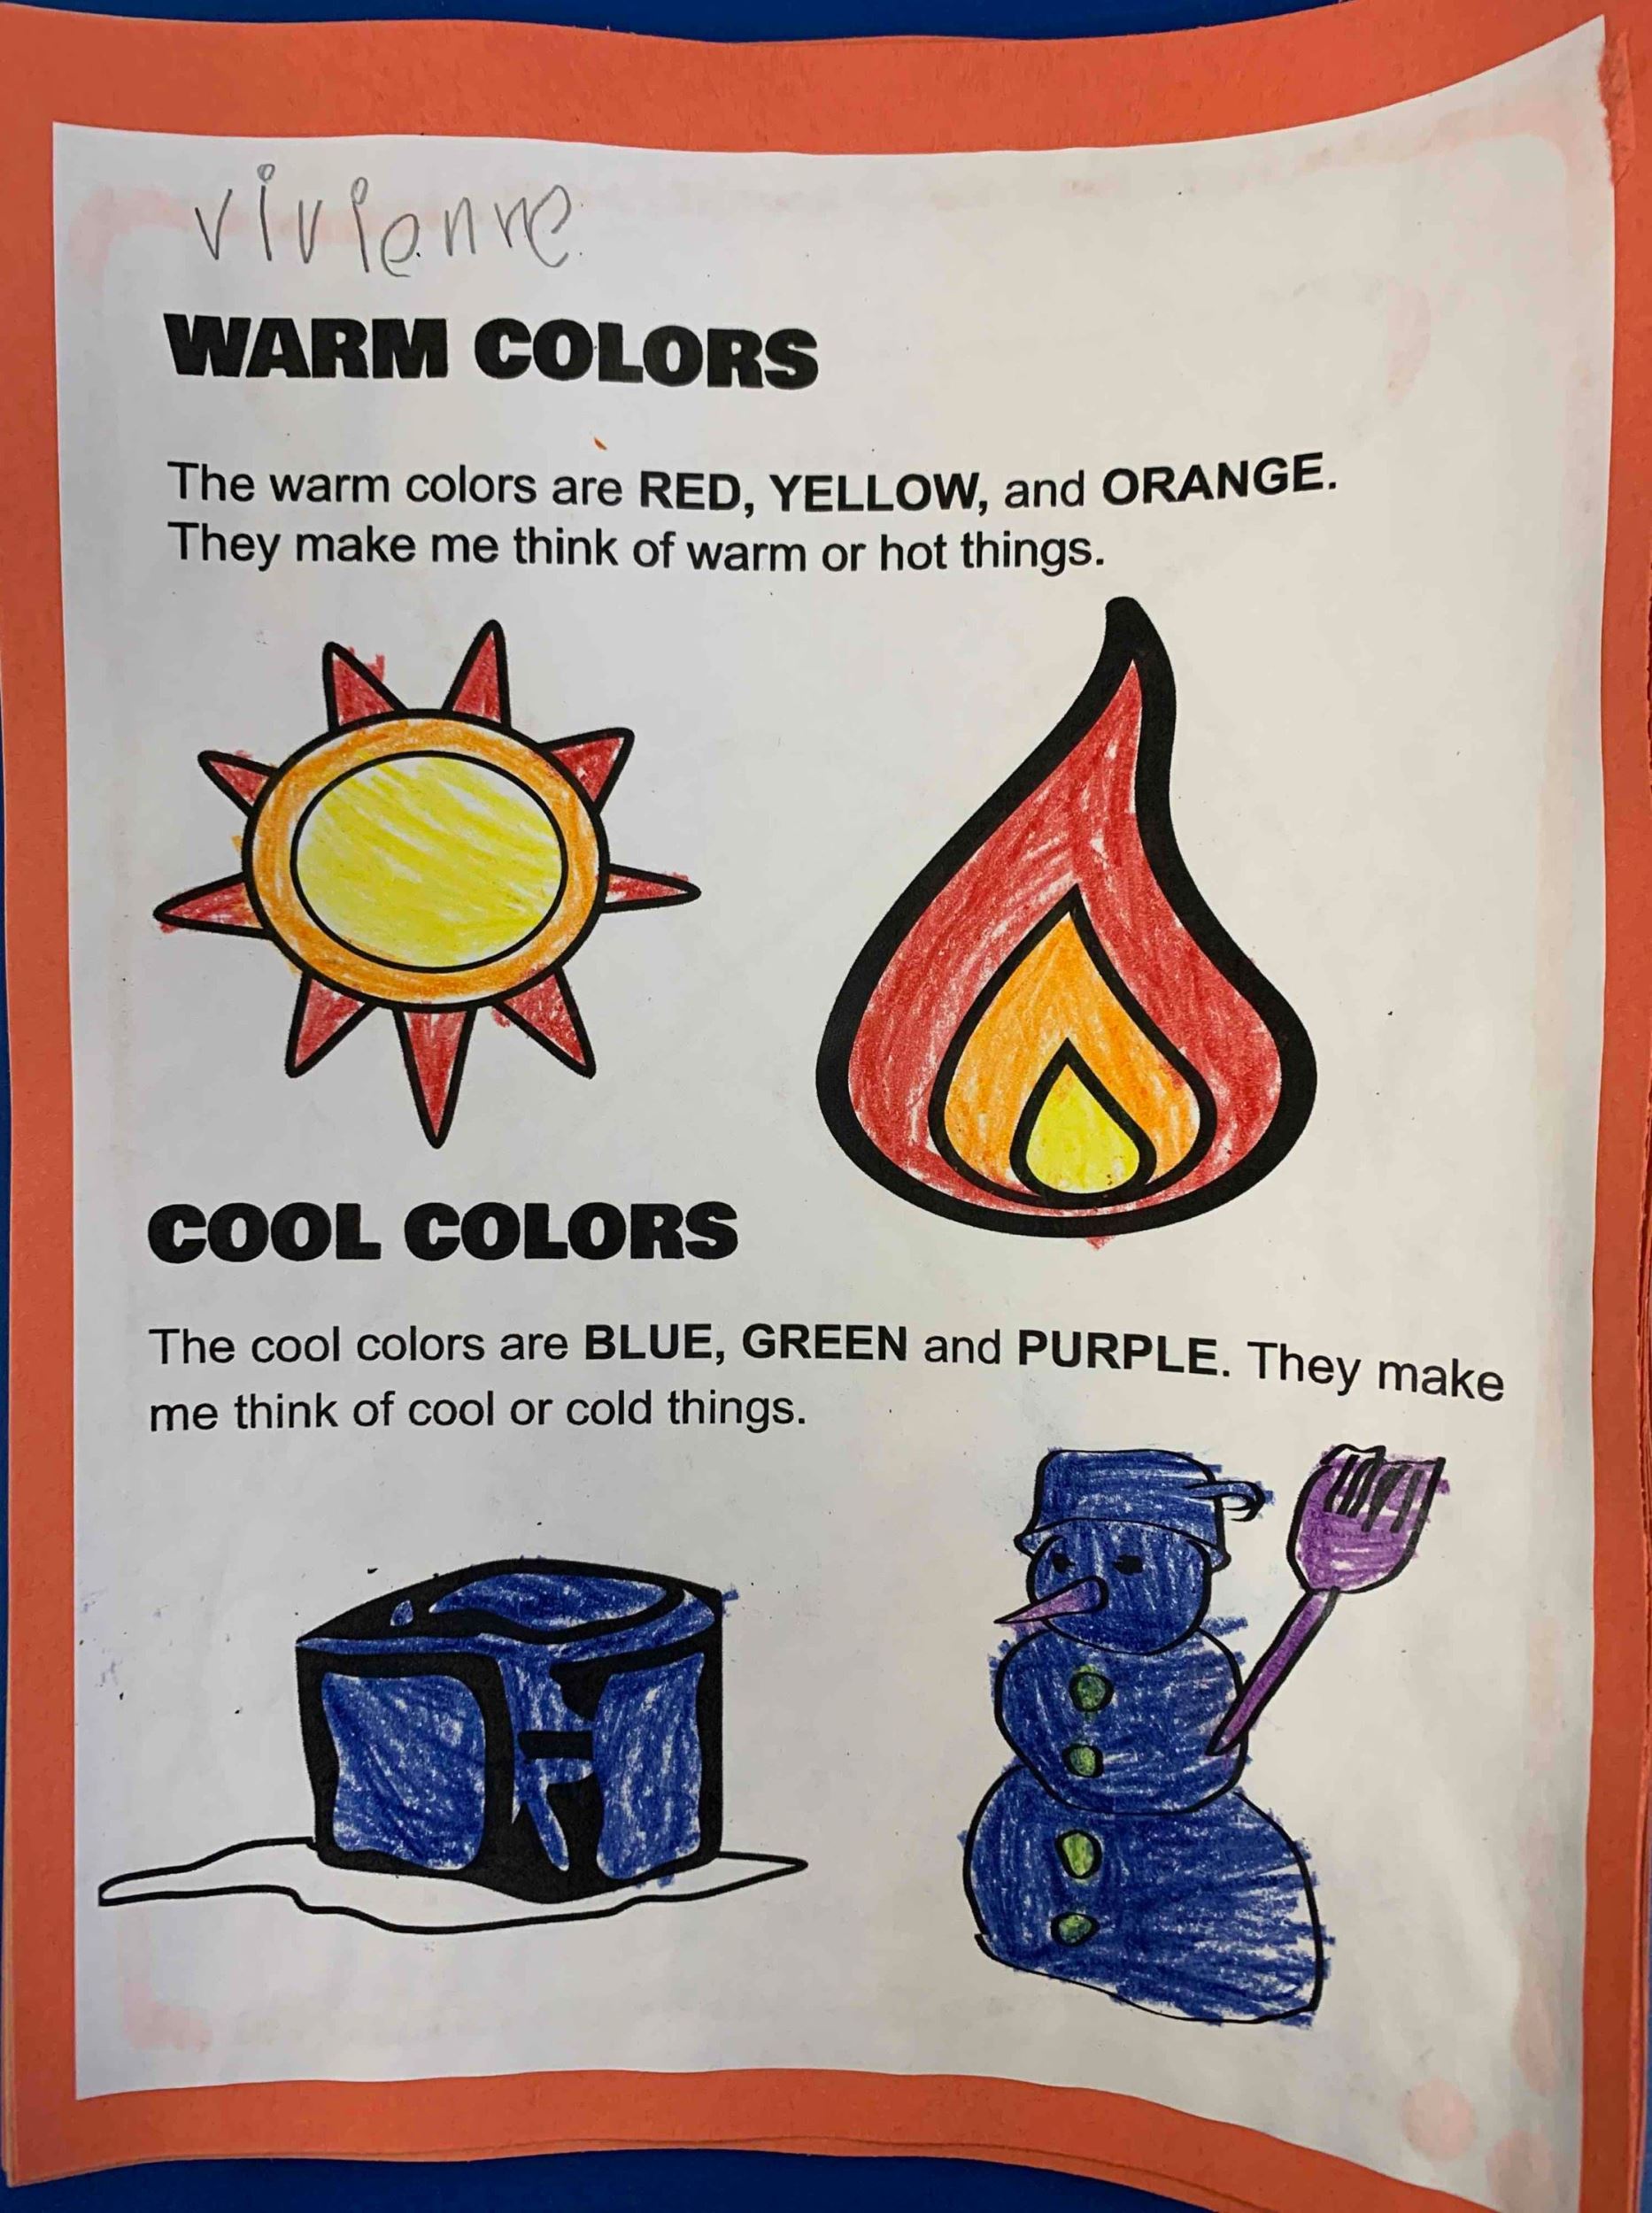 vivienne
WARM COLORS
The warm colors are RED, YELLOW, and ORANGE.
They make me think of warm or hot things.
COOL COLORS
The cool colors are BLUE, GREEN and PURPLE. They make
me think of cool or cold things.